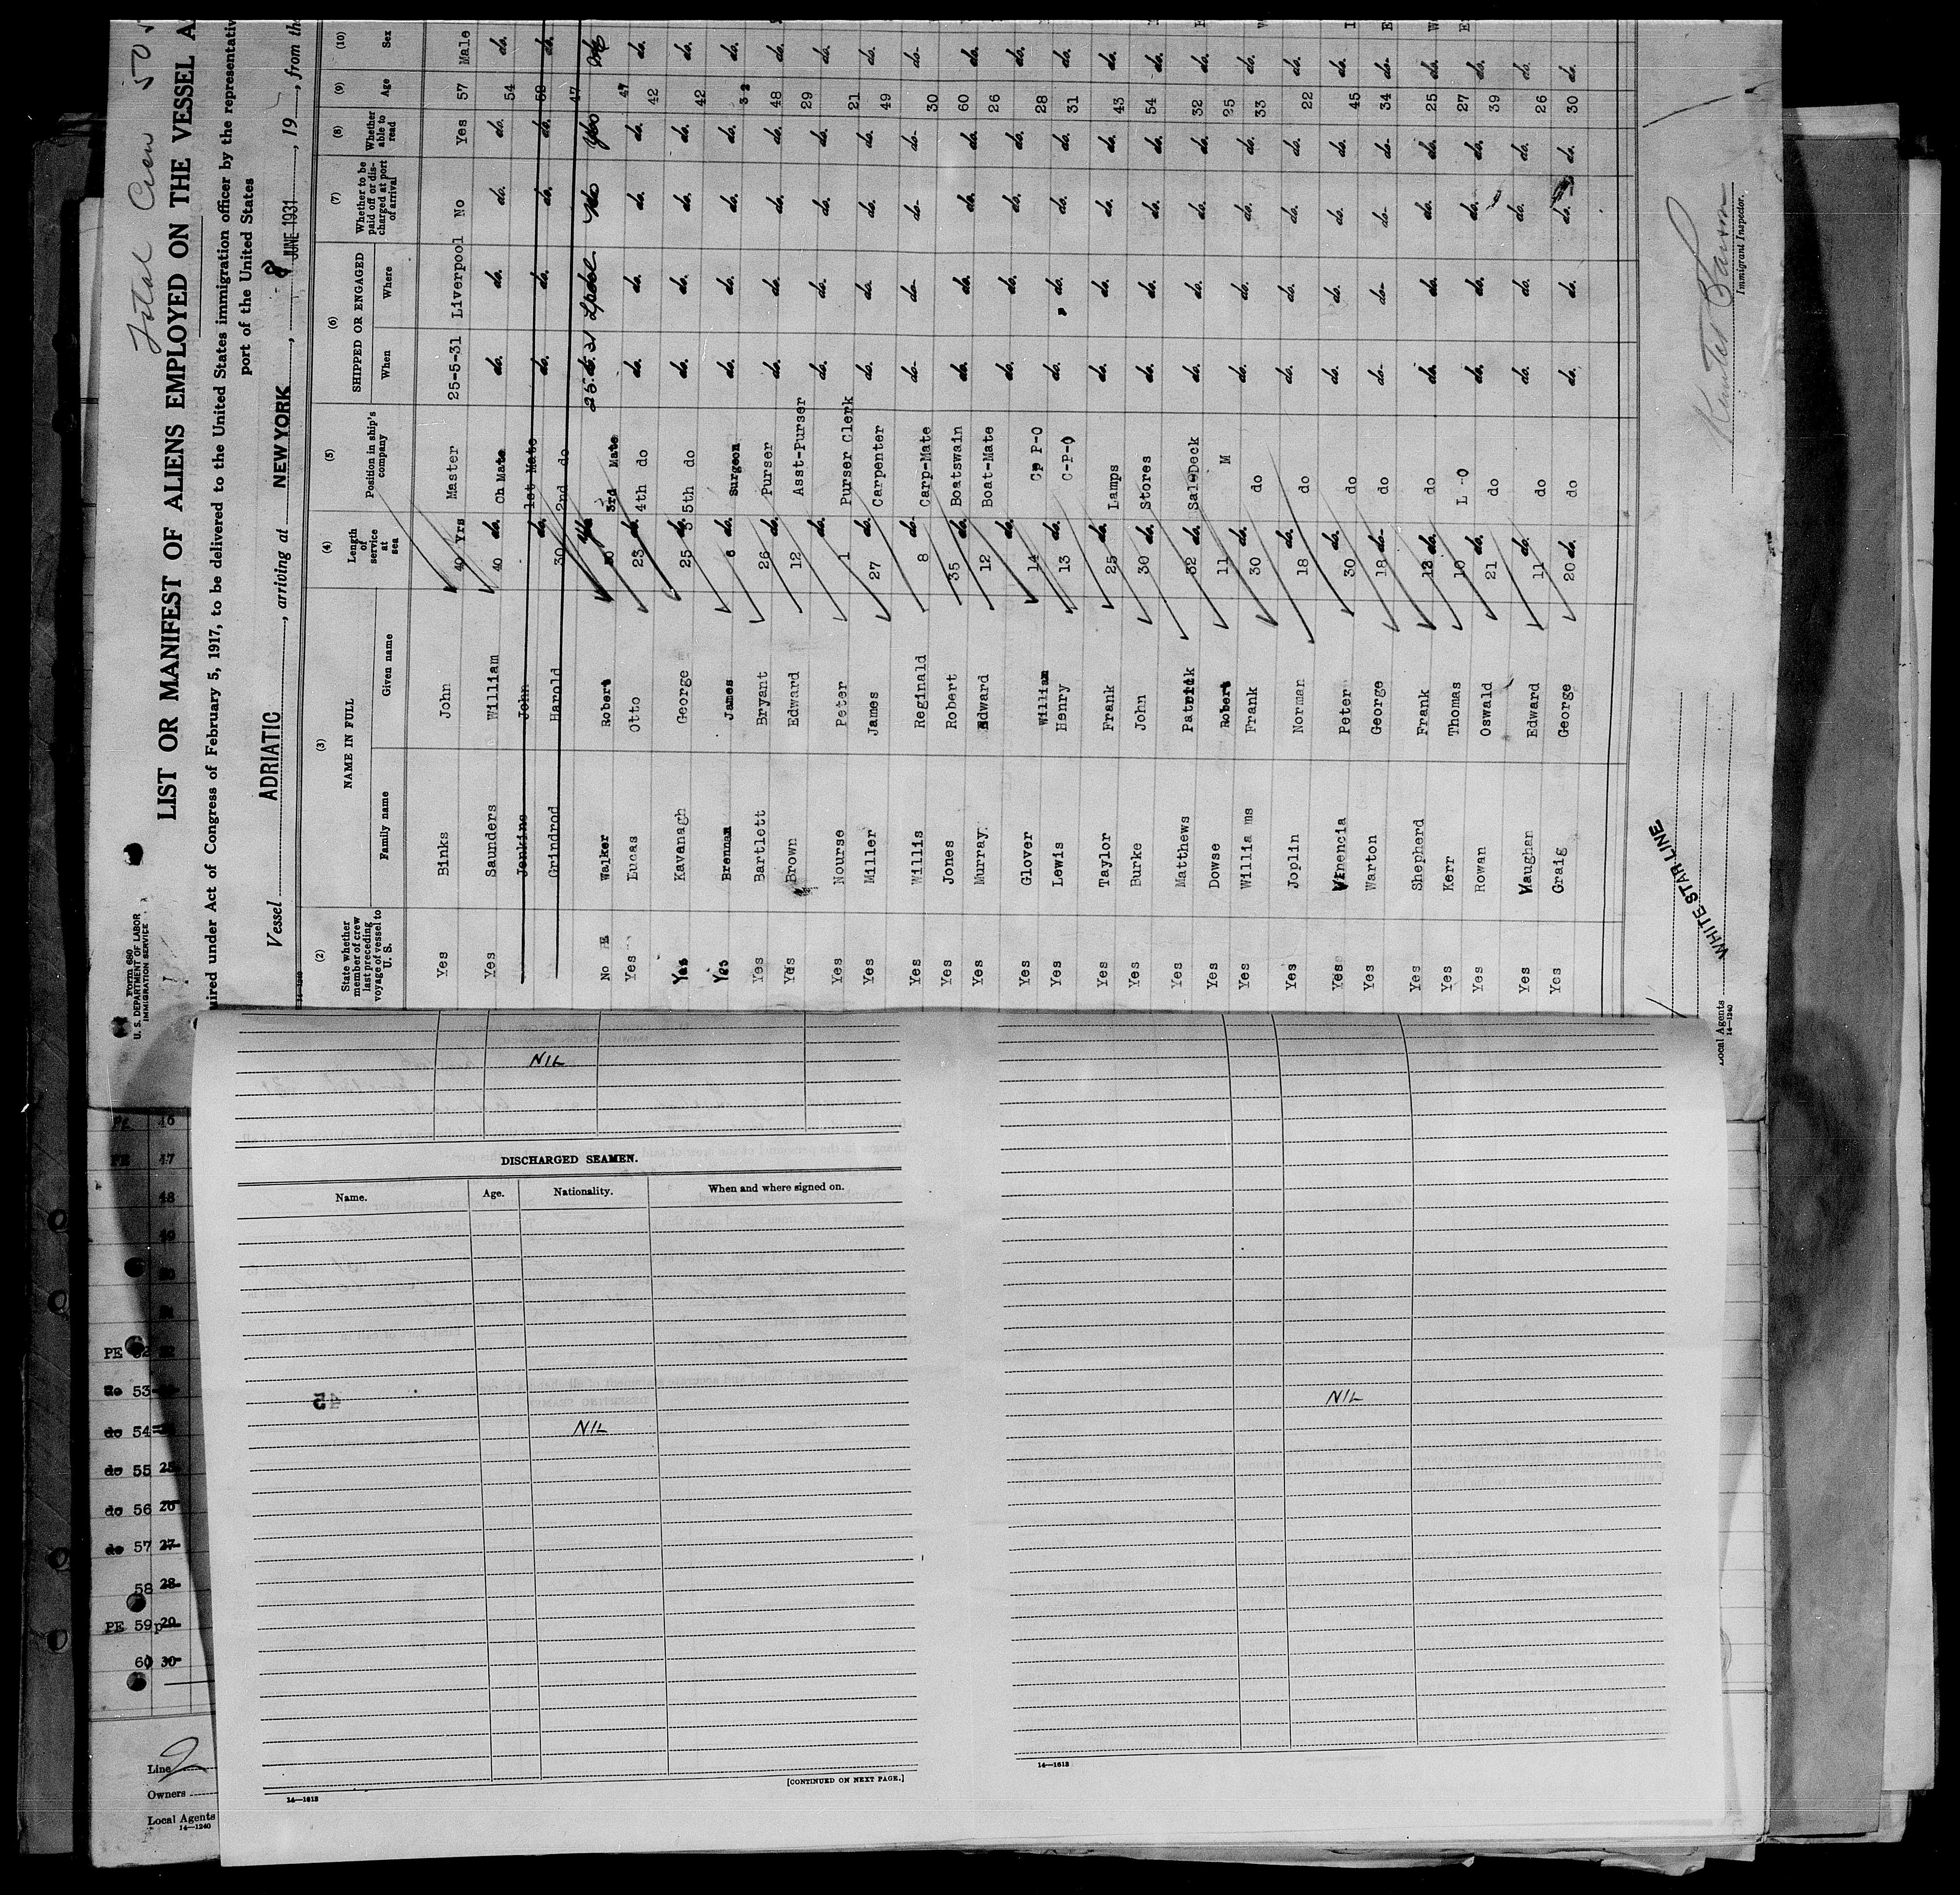 Total Crew
Form 680
U. S. DEPARTMENT OF LABOR
IMMIGRATION SERVICE
LIST OR MANIFEST OF ALIENS EMPLOYED ON THE VESSEL A
uired under Act of Congress of February 5, 1917, to be delivered to the United States immigration officer by the representativ
port of the United States
Vessel ADRIATIC, arriving at NEW YORK, 8 JUNE 1931, 19, from th
(2) (3) (4) (5) (6) (7) (8) (9) (10)
State whether member of crew last preceding voyage of vessel to U. S. NAME IN FULL Family name Given name Length of service at sea Position in ship's company SHIPPED OR ENGAGED When Where Whether to be paid off or discharged at port of arrival Whether able to read Age Sex
Yes Binks John 40 Yrs Master 25-5-31 Liverpool No Yes 57 Male
Yes Saunders William 40 do. Ch Mate do. do. do. do. 54 do.
Jenkins John do. 1st Mate do. do. do. do. 52 do.
Grindrod Harold 30 2nd do 47
No PE Walker Robert 3rd Mate 25.5.31 Lpool No Yes 47 do
Yes Lucas Otto 23 do. 4th do do. do. do. do. 42 do.
Yes Kavanagh George 25 do. 5th do do. do. do. do. 42 do.
Yes Brennan James 6 do. Surgeon do. do. do. do. 32 do.
Yes Bartlett Bryant 26 do. Purser do. do. do. do. 48 do.
Yes Brown Edward 12 do. Asst-Purser do. do. do. do. 29 do.
Yes Nourse Peter 1 do. Purser Clerk do. do. do. do. 21 do.
Yes Miller James 27 Carpenter 49
Yes Willis Reginald 8 do. Carp-Mate do- do- do- do- 30 do-
Yes Jones Robert 35 do. Boatswain do. do. do. do. 60 do.
Yes Murray. Edward 12 do. Boat-Mate do. do. do. do. 26 do.
Yes Glover William 14 P-O 28
Yes Lewis Henry 13 do. C-P-O do. do. do. do. 31 do.
Yes Taylor Frank 25 do. Lamps do. do. do. do. 43 do.
Yes Burke John 30 do. Stores do. do. do. do. 54 do.
Yes Matthews Patrick 32 do. Deck do. do. do. do. 32 do.
Yes Dowse Robert 11 do. M do. do. do. do. 25 do.
Yes Willia ms Frank 30 do 33
Yes Joplin Norman 18 do. do do. do. do. do. 22 do.
Yes Vinencia Peter 30 do. do do. do. do. do. 45 do.
Yes Warton George 18 do- do do- do- do- do- 34 do-
Yes Shepherd Frank do. do do. do. do. do. 25 do.
Yes Kerr Thomas 10 do. L -O do. do. do. do. 27 do.
Yes Rowan Oswald 21 do 39
Yes Vaughan Edward 11 do. do do. do. do. do. 26 do.
Yes Graig George 20 do. do do. do. do. do. 30 do.
Immigrant Inspector.
WHITE STAR LINE
Local Agents
14—1240
NIL
DISCHARGED SEAMEN.
Name. Age. Nationality. When and where signed on.
NIL
[CONTINUED ON NEXT PAGE.]
14—1613
NIL
14—1613
46
PE 47
48
49
PE 52
do 53
do 54
do 55 25
do 56 26
do 57 27
58 28
PE 59 29
60 30
Line
Owners
Local Agents
14—1240